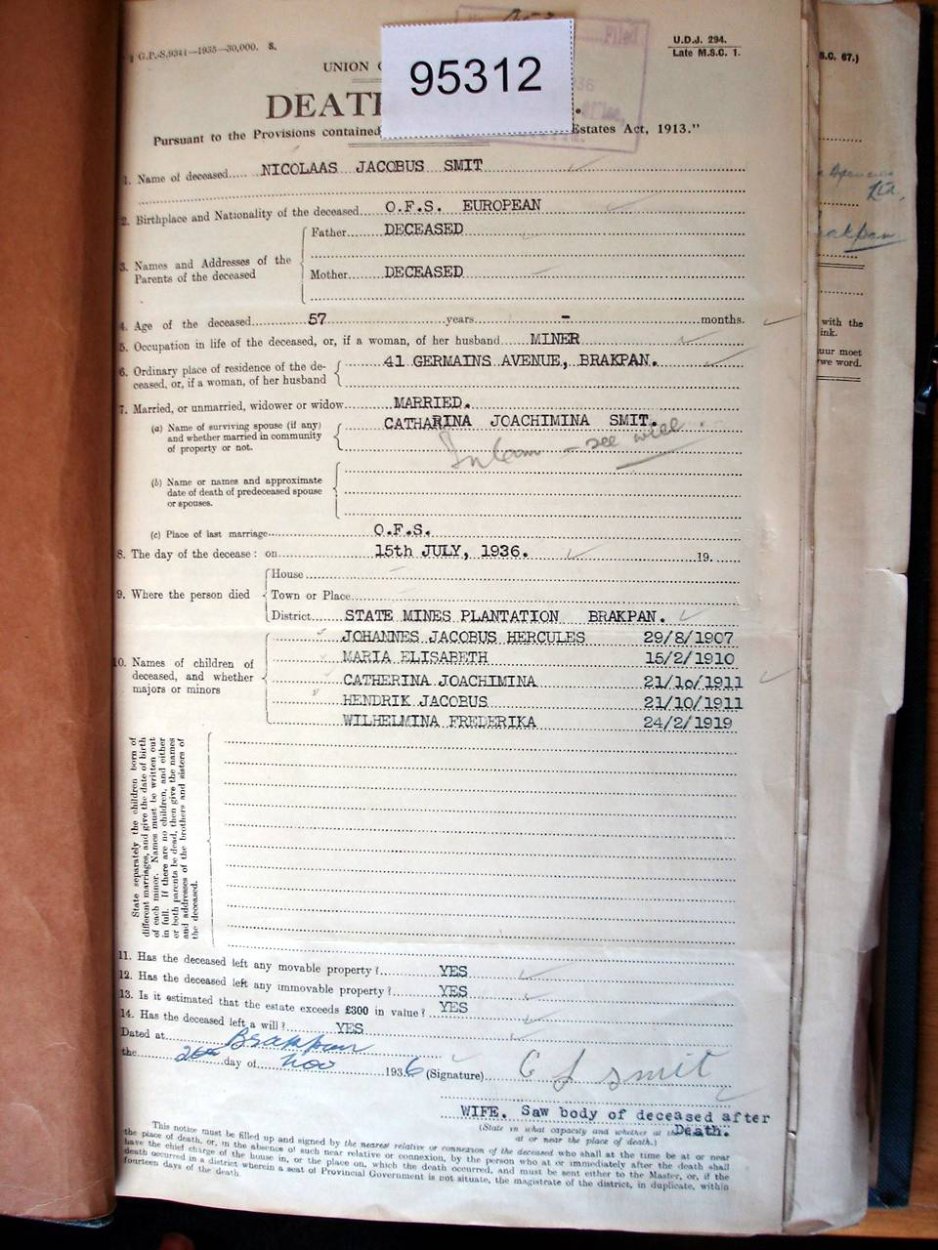 G.P.-S.9341—1935—30,000. S.
U.D.J. 294.
Late M.S.C. 1.
Filed
95312
UNION
DEAT
Pursuant to the Provisions contained Estates Act, 1913."
1. Name of deceased NICOLAAS JACOBUS SMIT
2. Birthplace and Nationality of the deceased O.F.S. EUROPEAN
3. Names and Addresses of the Parents of the deceased
Father DECEASED
Mother DECEASED
4. Age of the deceased 57 years - months.
5. Occupation in life of the deceased, or, if a woman, of her husband MINER
6. Ordinary place of residence of the de-
ceased, or, if a woman, of her husband
41 GERMAINS AVENUE, BRAKPAN.
7. Married, or unmarried, widower or widow MARRIED.
(a) Name of surviving spouse (if any)
and whether married in community
of property or not.
CATHARINA JOACHIMINA SMIT.
In Com – see will.
(b) Name or names and approximate
date of death of predeceased spouse
or spouses.
(c) Place of last marriage O.F.S.
8. The day of the decease: on 15th JULY, 1936. 19
9. Where the person died
House
Town or Place
District STATE MINES PLANTATION BRAKPAN.
10. Names of children of
deceased, and whether
majors or minors
JOHANNES JACOBUS HERCULES 29/8/1907
MARIA ELISABETH 15/2/1910
CATHERINA JOACHIMINA 21/10/1911
HENDRIK JACOBUS 21/10/1911
WILHELMINA FREDERIKA 24/2/1919
State separately the children born of
different marriages, and give the date of birth
of each minor. Names must be written out
in full. If there are no children, and either
or both parents be dead, then give the names
and addresses of the brothers and sisters of
the deceased.
11. Has the deceased left any movable property? YES
12. Has the deceased left any immovable property? YES
13. Is it estimated that the estate exceeds £300 in value? YES
14. Has the deceased left a will? YES
Dated at Brakpan
the 26th day of Nov 1936 (Signature) C J Smit
WIFE. Saw body of deceased after
Death.
(State in what capacity and whether at the
at or near the place of death.)
This notice must be filled up and signed by the nearest relative or connexion of the deceased who shall at the time be at or near
the place of death, or, in the absence of such near relative or connexion, by the person who at or immediately after the death shall
have the chief charge of the house in, or the place on, which the death occurred, and must be sent either to the Master, or, if the
death occurred in a district wherein a seat of Provincial Government is not situate, the magistrate of the district, in duplicate, within
fourteen days of the death.
S.C. 67.)
Ltd.
akpan
with the
ink.
uur moet
we word.